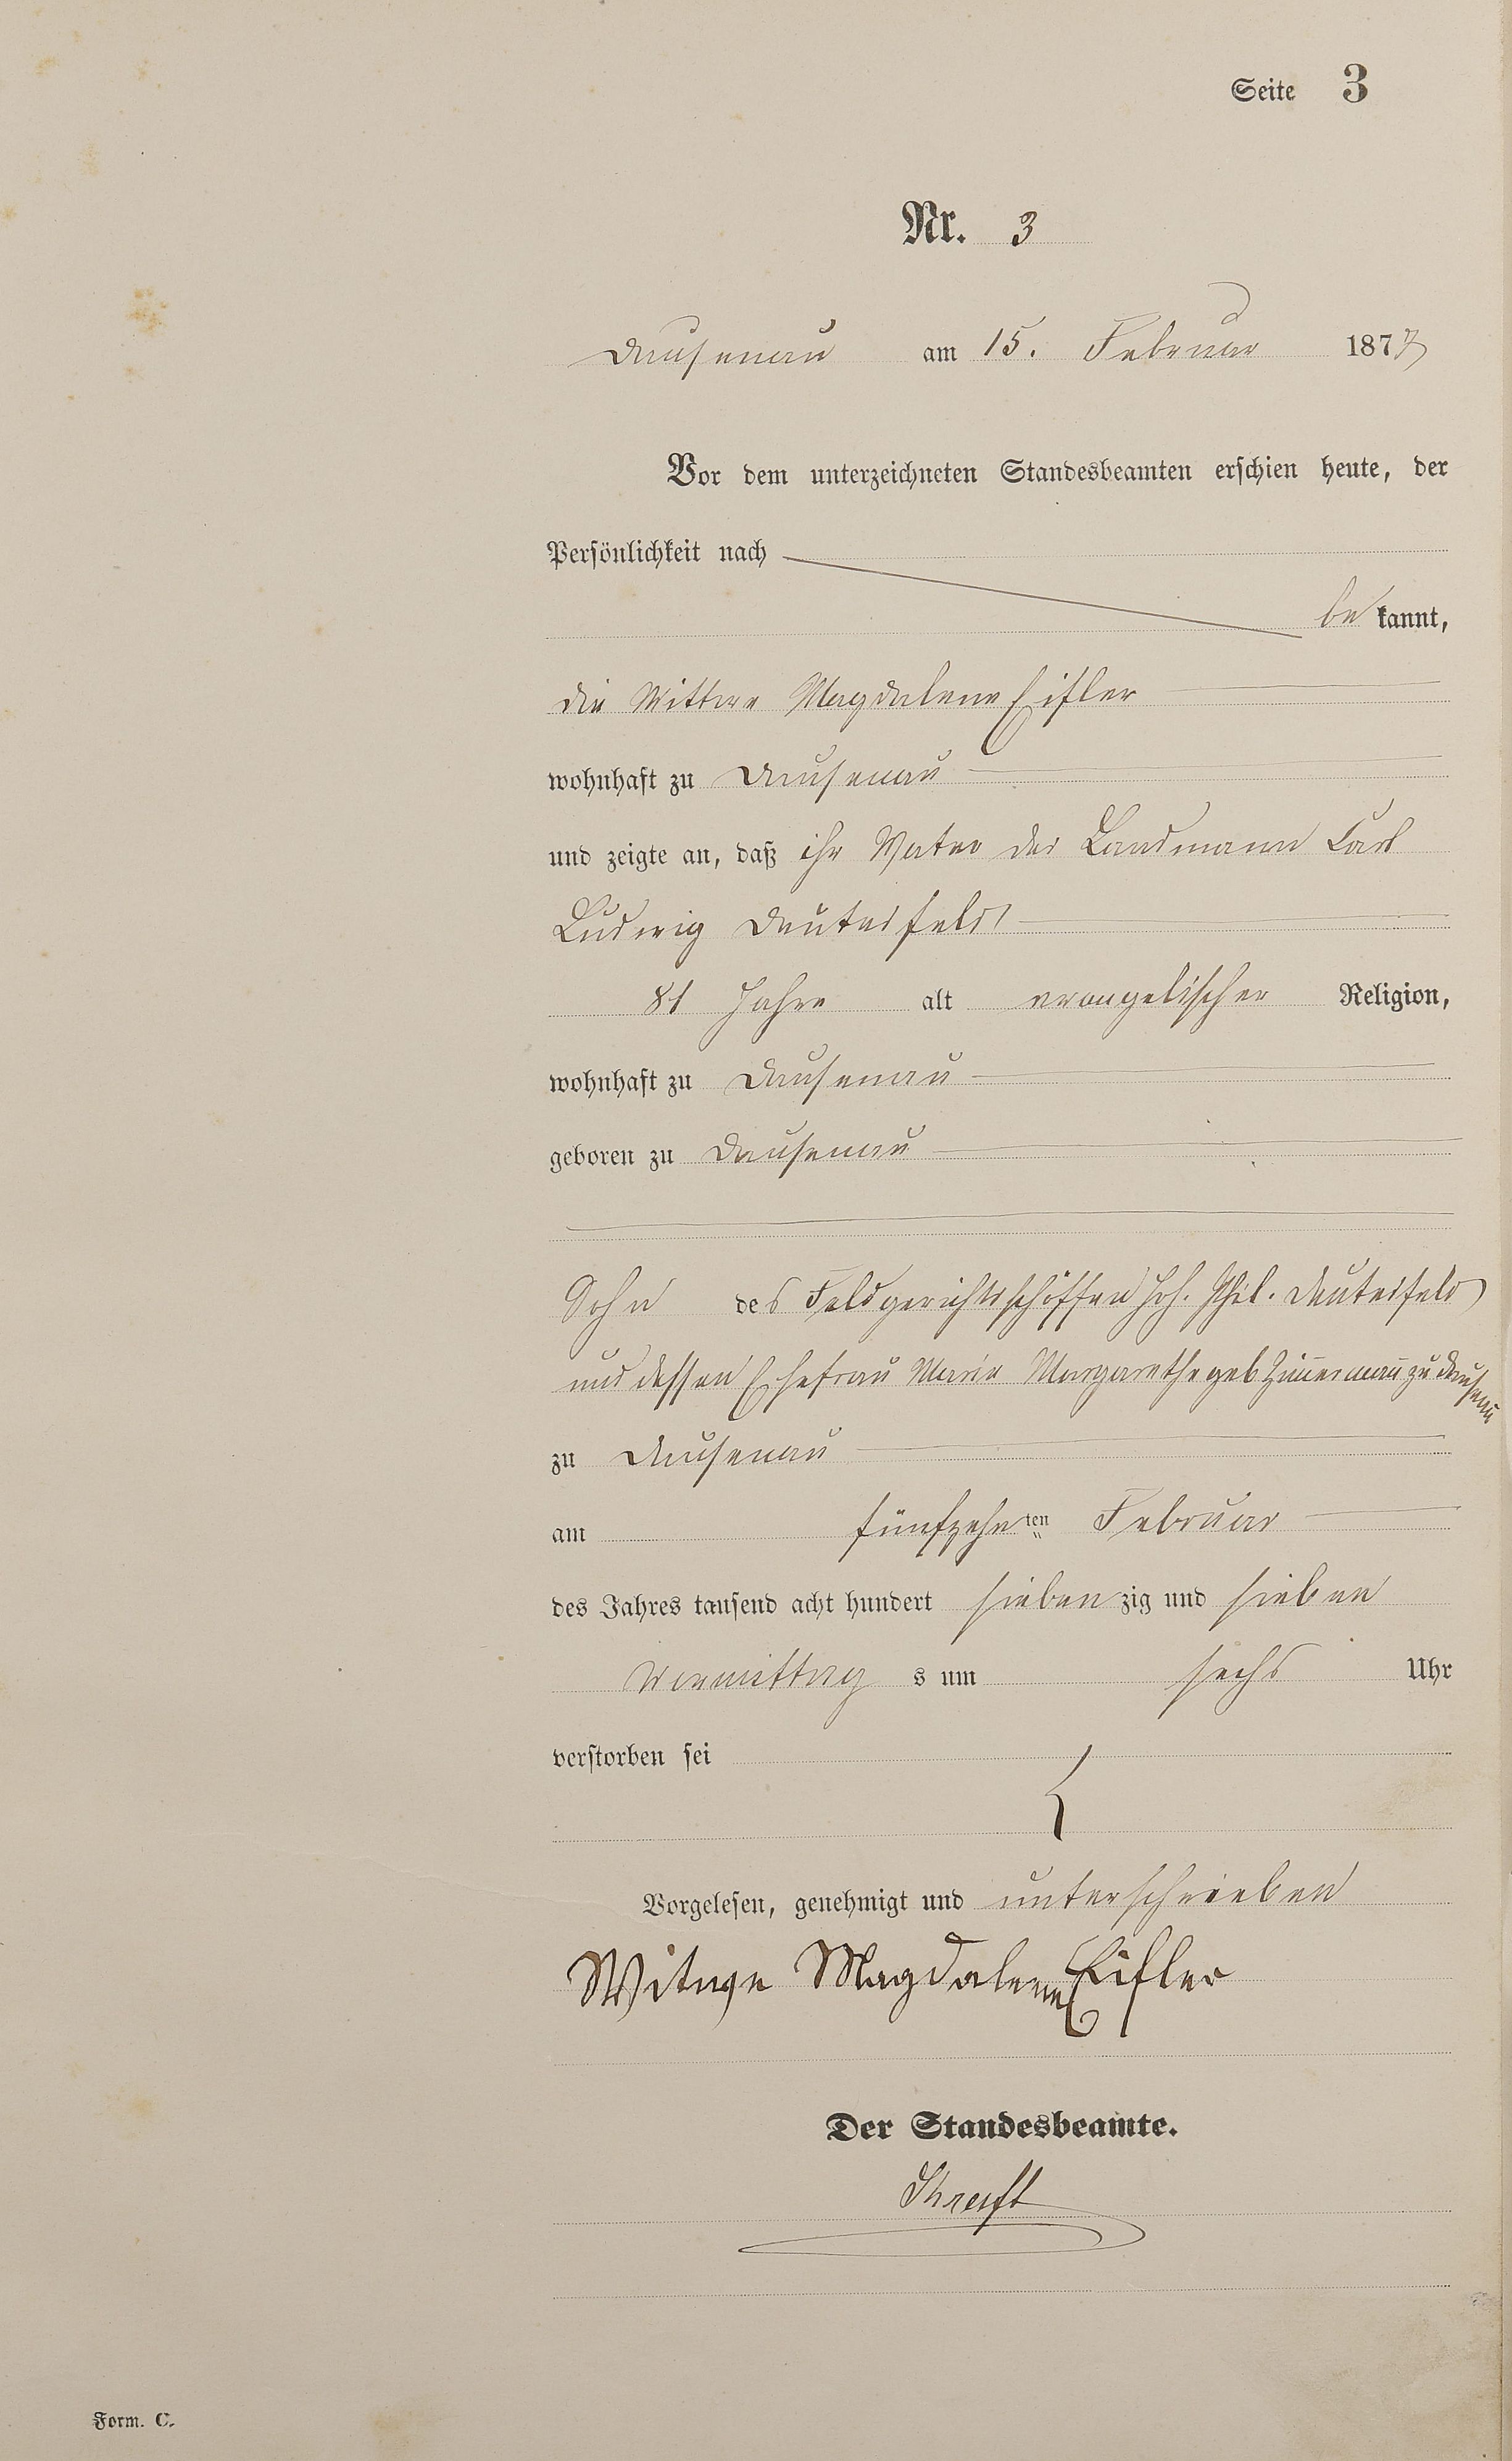 Seite 3
Nr. 3
Dausenau am 15. Februar 1877
Vor dem unterzeichneten Standesbeamten erschien heute, der
Persönlichkeit nach
be kannt,
die Wittwe Magdalene Eifler
wohnhaft zu Dausenau
und zeigte an, daß ihr Vater der Landmann Carl
Ludwig Deuterfeld
81 Jahre alt evangelischer Religion,
wohnhaft zu Dausenau
geboren zu Dausenau
Sohn des Feldgerichtsschöffen Joh. Phil. Deuterfeld
und dessen Ehefrau Marie Margarethe geb Zimmermann zu Dausenau
zu Dausenau
am fünfzehn ten Februar
des Jahres tausend acht hundert sieben zig und sieben
Vormittag s um sechs Uhr
verstorben sei
Vorgelesen, genehmigt und unterschrieben
Witwe Magdalene Eifler
Der Standesbeamte.
Form. C.